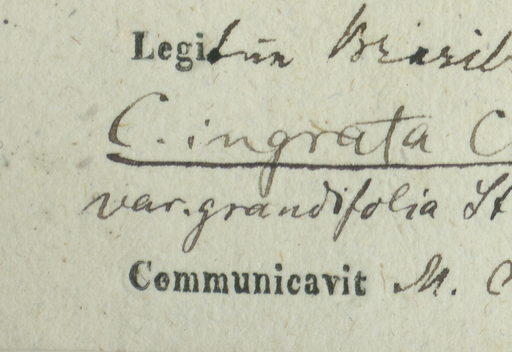 Legit in Brasil
C. ingrata C
var. grandifolia St
Communicavit M.